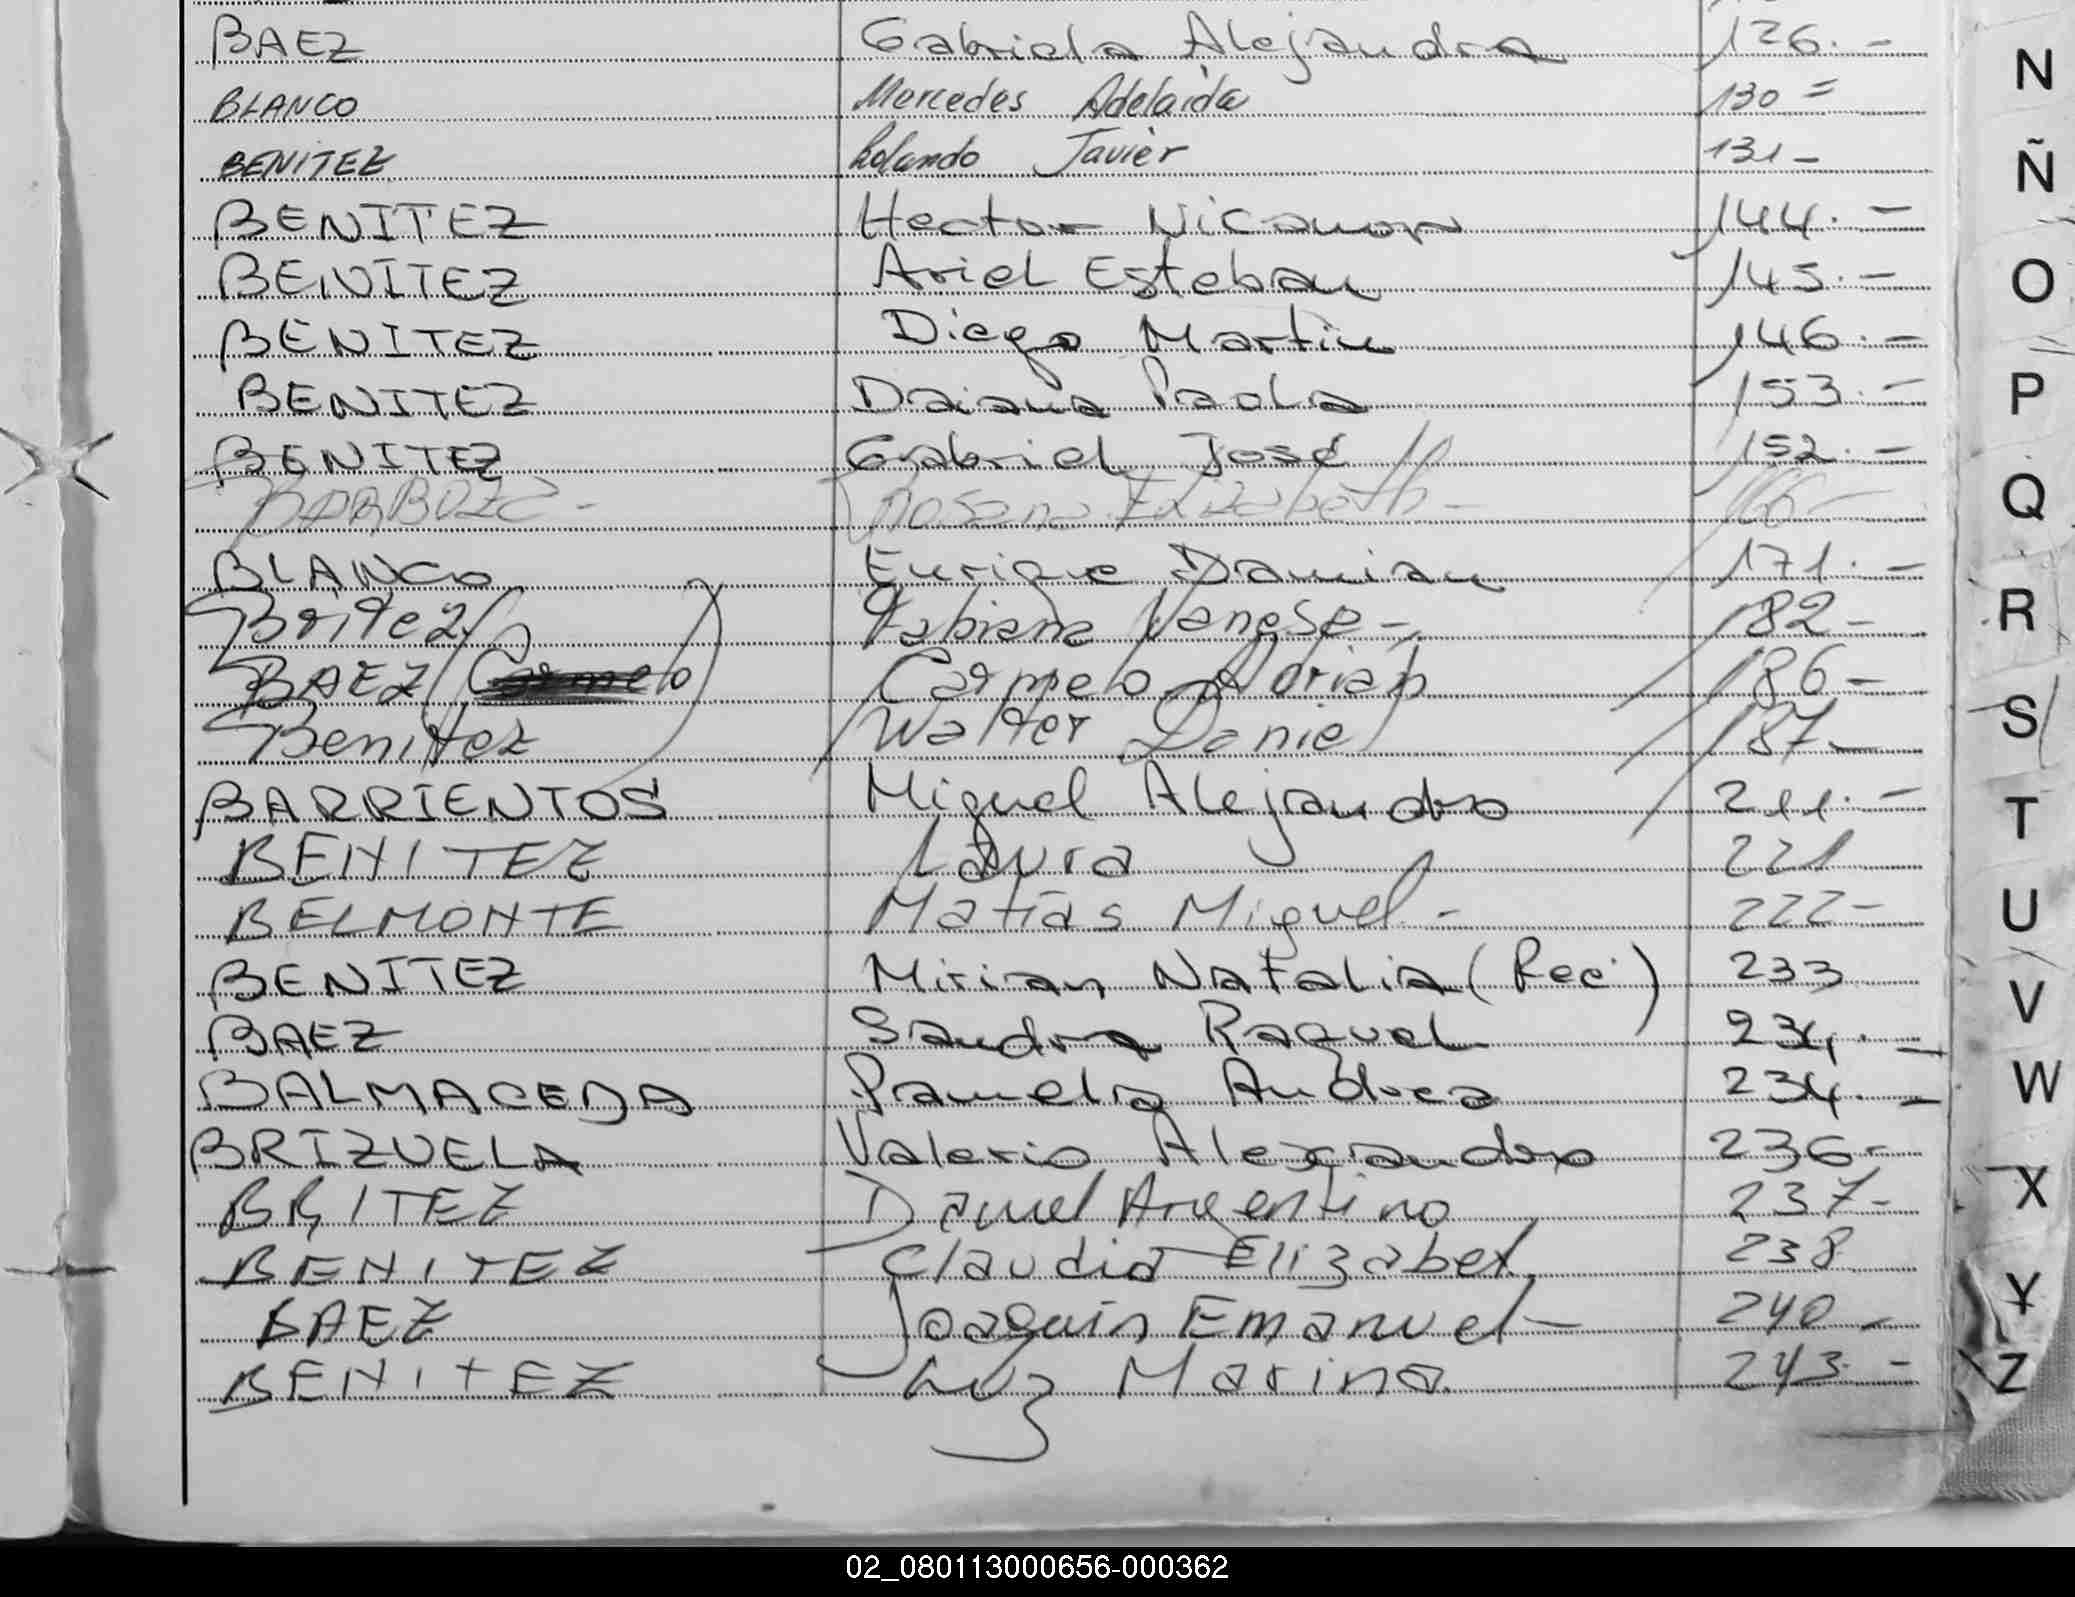 BAEZ Gabriela Alejandra 126.-
BLANCO Mercedes Adelaida 130=
BENITEZ Rolando Javier 131-
BENITEZ Hector Nicanor 144.-
BENITEZ Ariel Esteban 145.-
BENITEZ Diego Martin 146.-
BENITEZ Daiana Paola 153.-
BENITEZ Gabriel José 152.-
BARBOZA- Rosana Elizabeth- 166-
BLANCO Enrique Damian 171.-
Britez Fabiana Vanesa- 182-
BAEZ (Carmelo) Carmelo Adrian 186-
Benitez Walter Daniel 187-
BARRIENTOS Miguel Alejandro 211.-
BENITEZ Laura 221
BELMONTE Matías Miguel- 222-
BENITEZ Mirian Natalia (Rec.) 233
BAEZ Sandra Raquel .-
BALMACEDA Pamela Andrea 234.-
BRIZUELA Valerio Alexandro 236-
BRITEZ Daniel Argentino 237-
BENITEZ Claudia Elizabet 238
BAEZ Joaquin Emanuel- 240-
BENITEZ Luz Marina 243.-
N
Ñ
O
P
Q
R
S
T
U
V
W
X
Y
Z
02_080113000656-000362